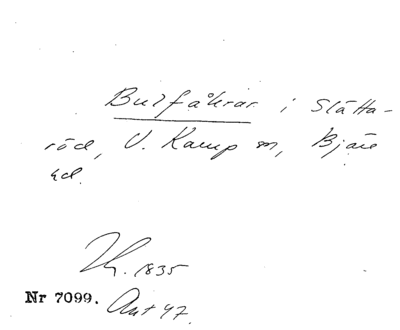 Bulfåkrar i Slätta-
röd, V. Karup sn, Bjäre
hd.
1835
Nr 7099. Ant 47.